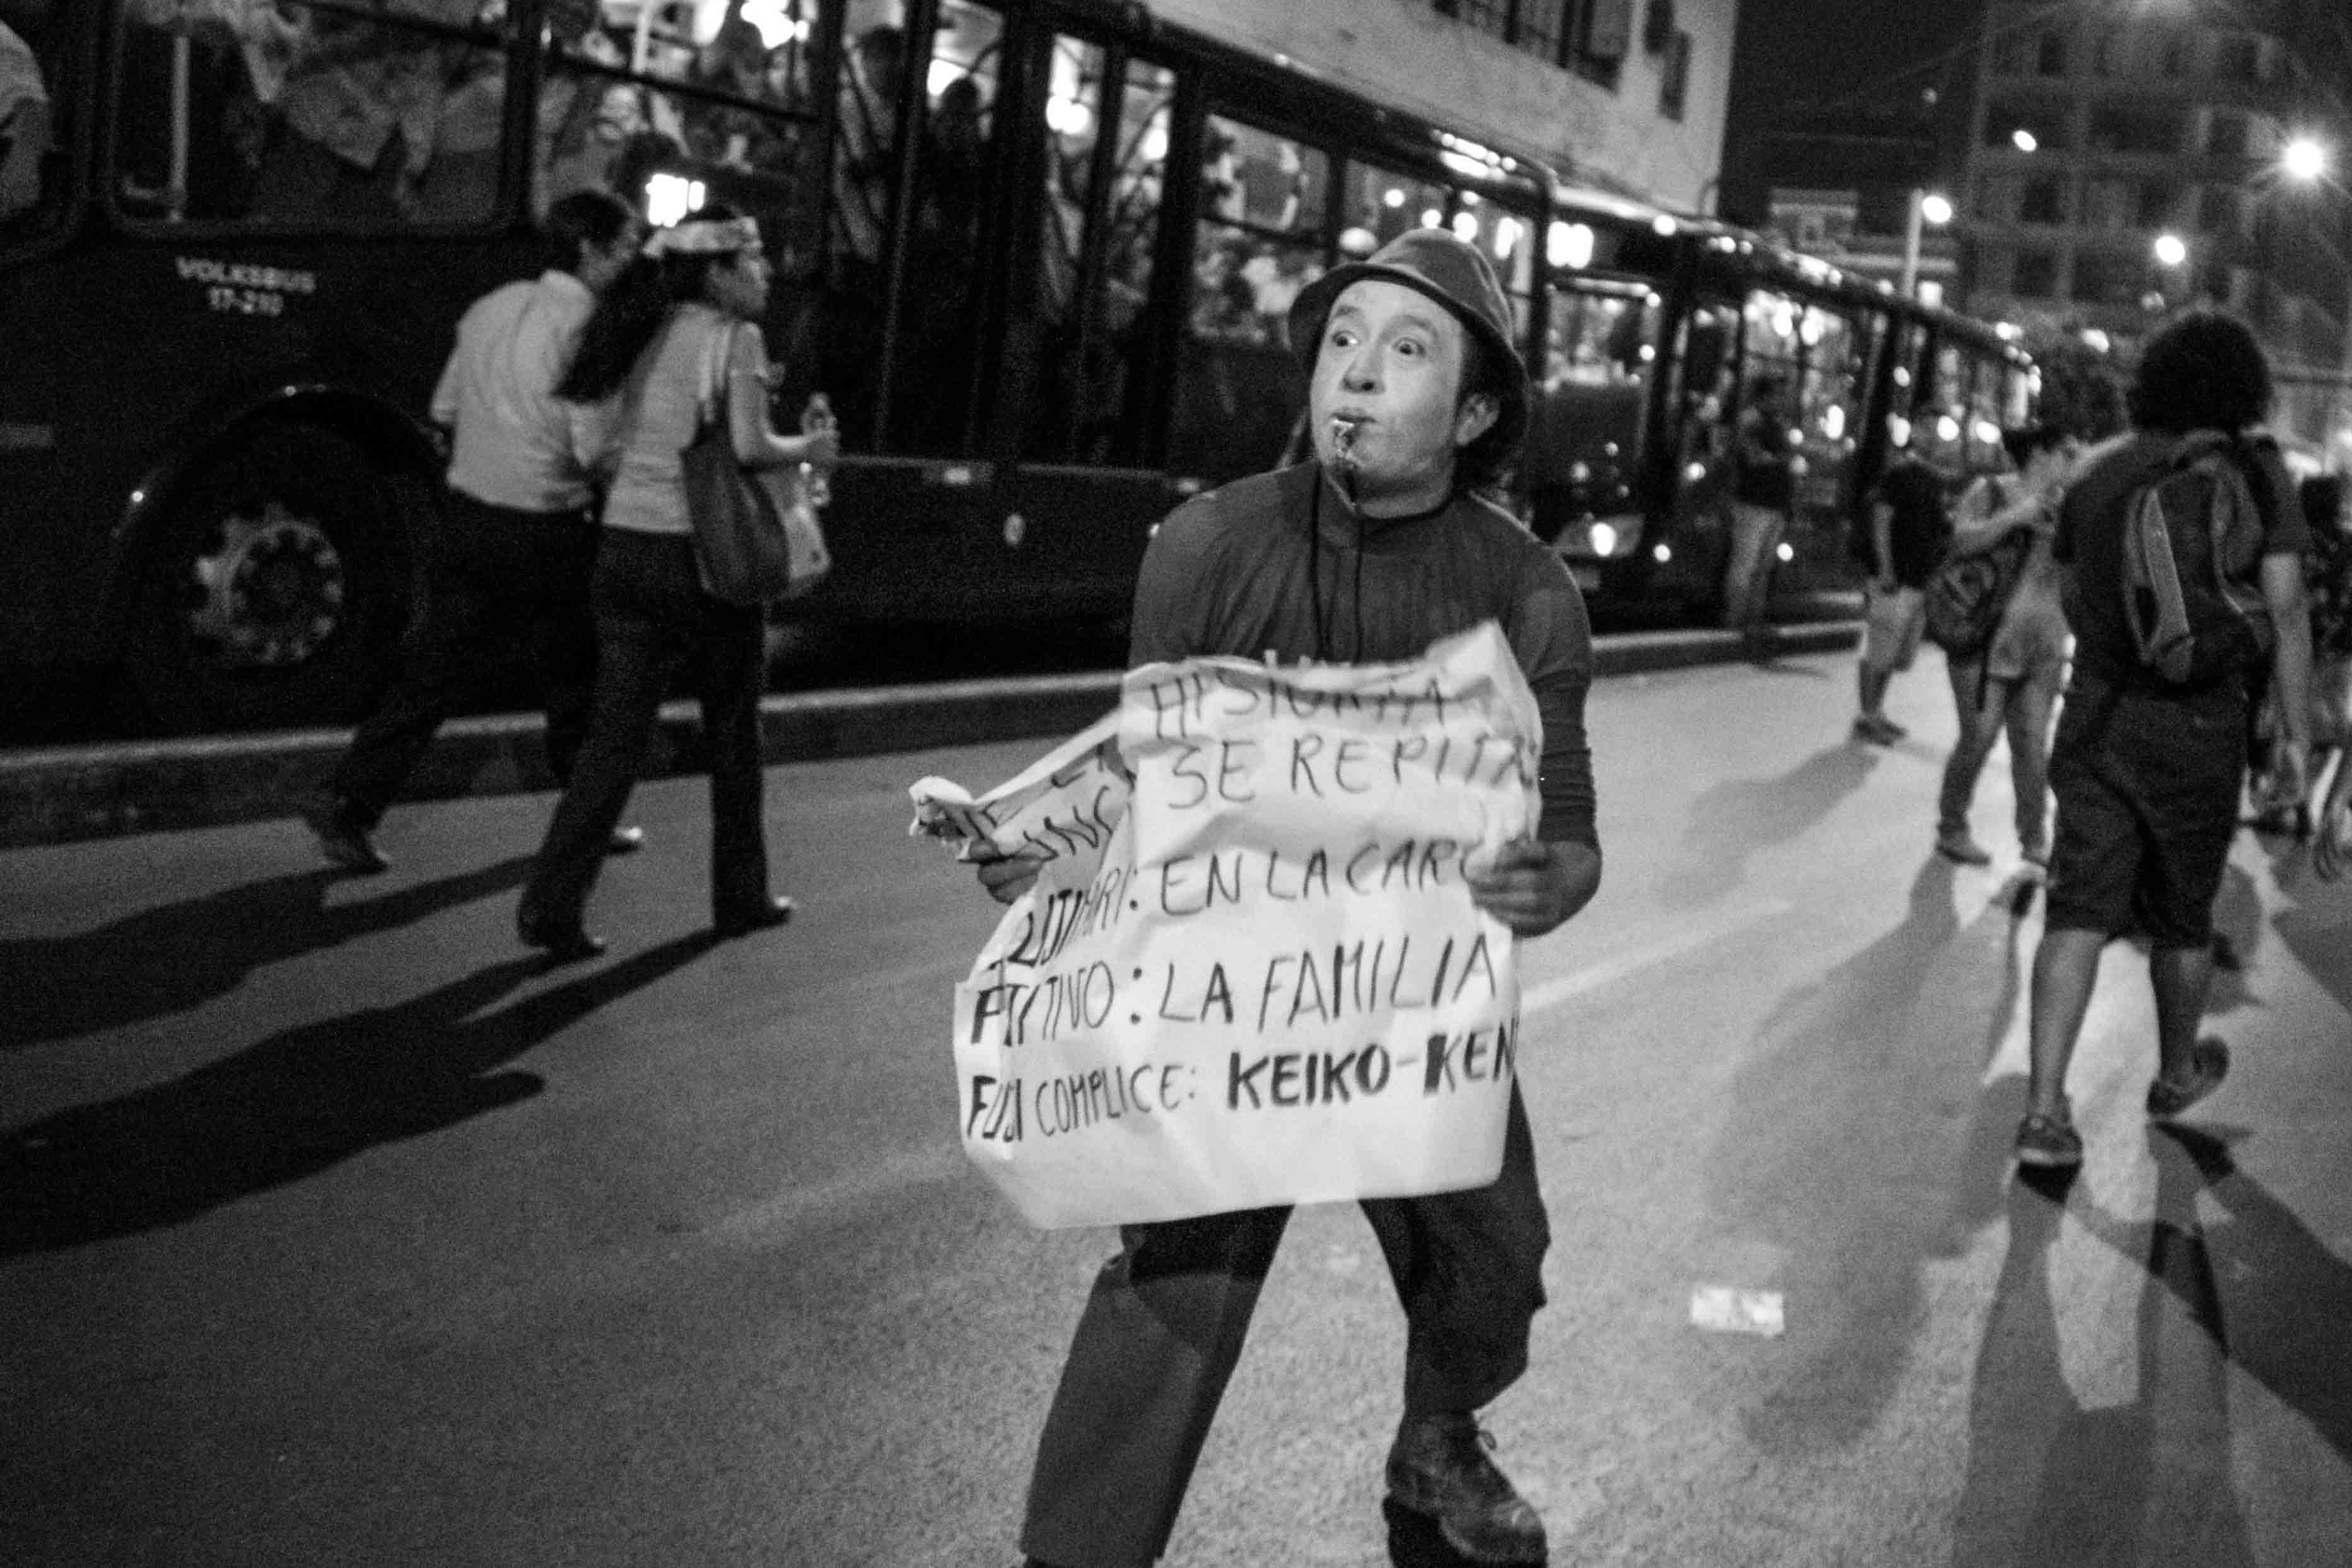 VOLKSBUS
17-210
HISTORIA
SE REPITA
EN LA CARC
LA FAMILIA
FUJI COMPLICE: KEIKO-KEN